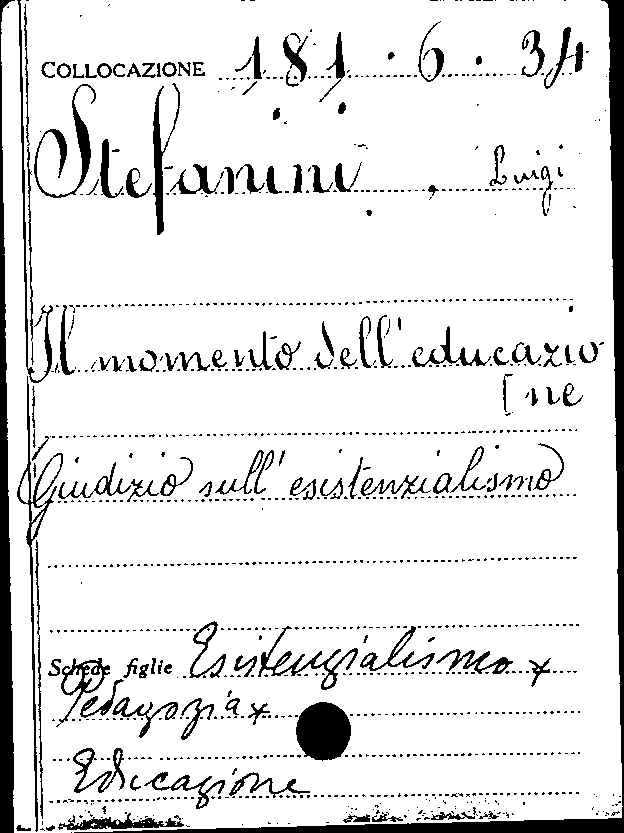 COLLOCAZIONE 181.6.34
Stefanini, Luigi
Il momento dell'educazio
[ne
Giudizio sull'esistenzialismo
Schede figlie Esistenzialismo x
Pedagogia x
Educazione